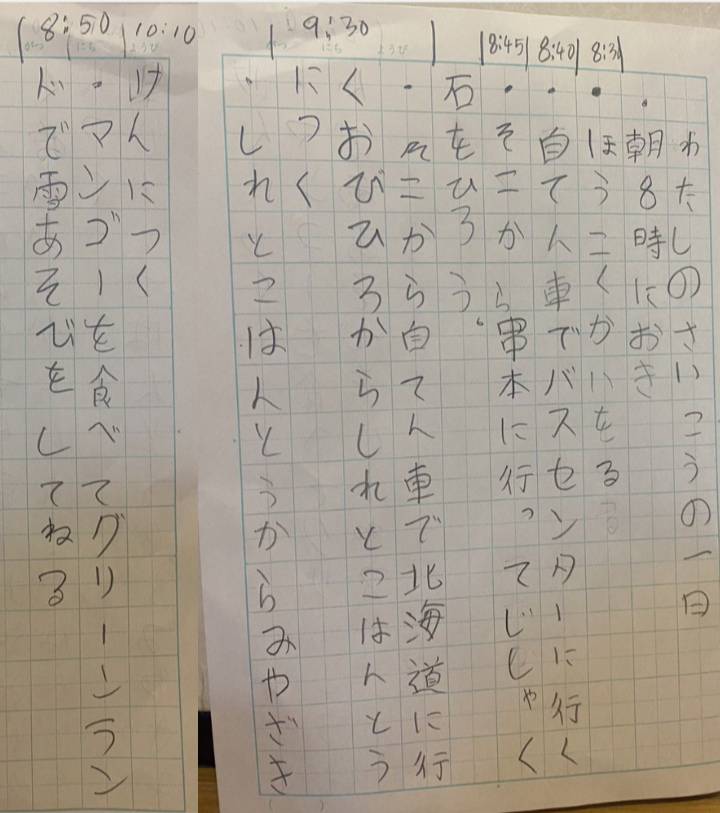 わたしのさいこうの一日
・朝8時におき
8:30
・ほうこくかいをる
8:40
・自てん車でバスセンターに行く
8:45
・そこから串本に行ってじしゃく
石をひろう。
9:30
・そこから自てん車で北海道に行
くおびひろからしれとこはんとう
につく
・しれとこはんとうからみやざき
10:10
けんにつく
8:50
・マンゴーを食べてグリーンラン
ドで雪あそびをしてねる